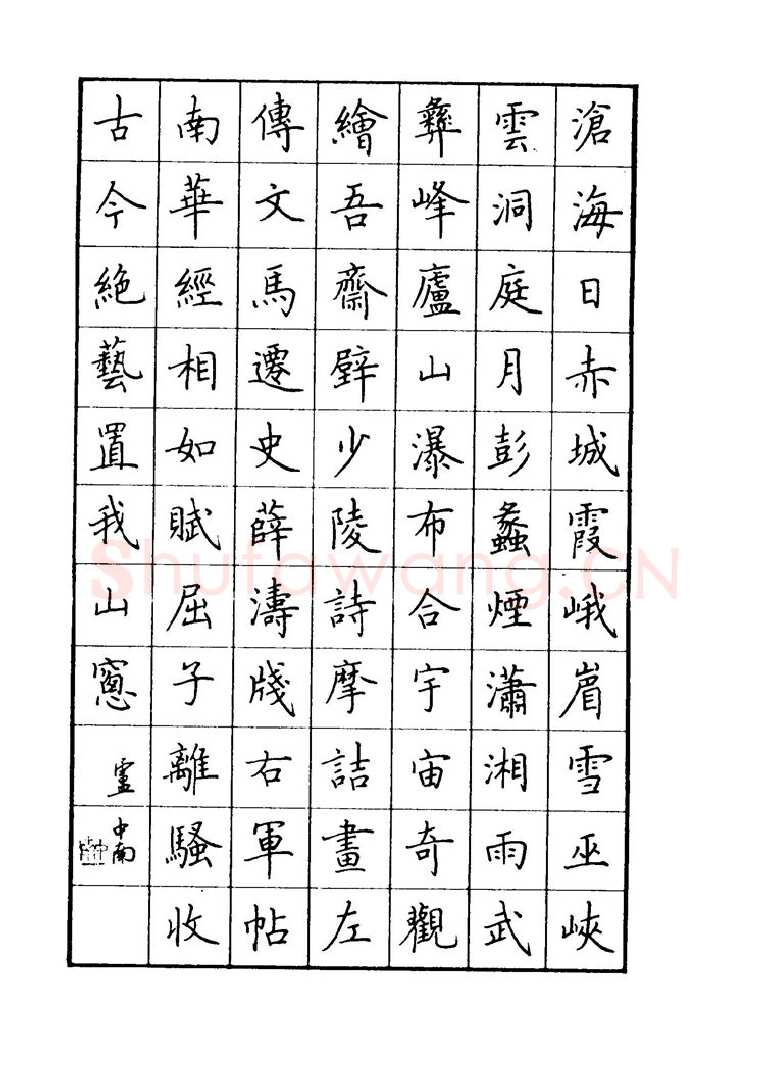 滄海日赤城霞峨眉雪巫峽
雲洞庭月彭蠡煙瀟湘雨武
彝峰廬山瀑布合宇宙奇觀
繪吾齋壁少陵詩摩詰畫左
傳文馬遷史薛濤牋右軍帖
南華經相如賦屈子離騷收
古今絶藝置我山窻
盧中南
Shufawang.CN